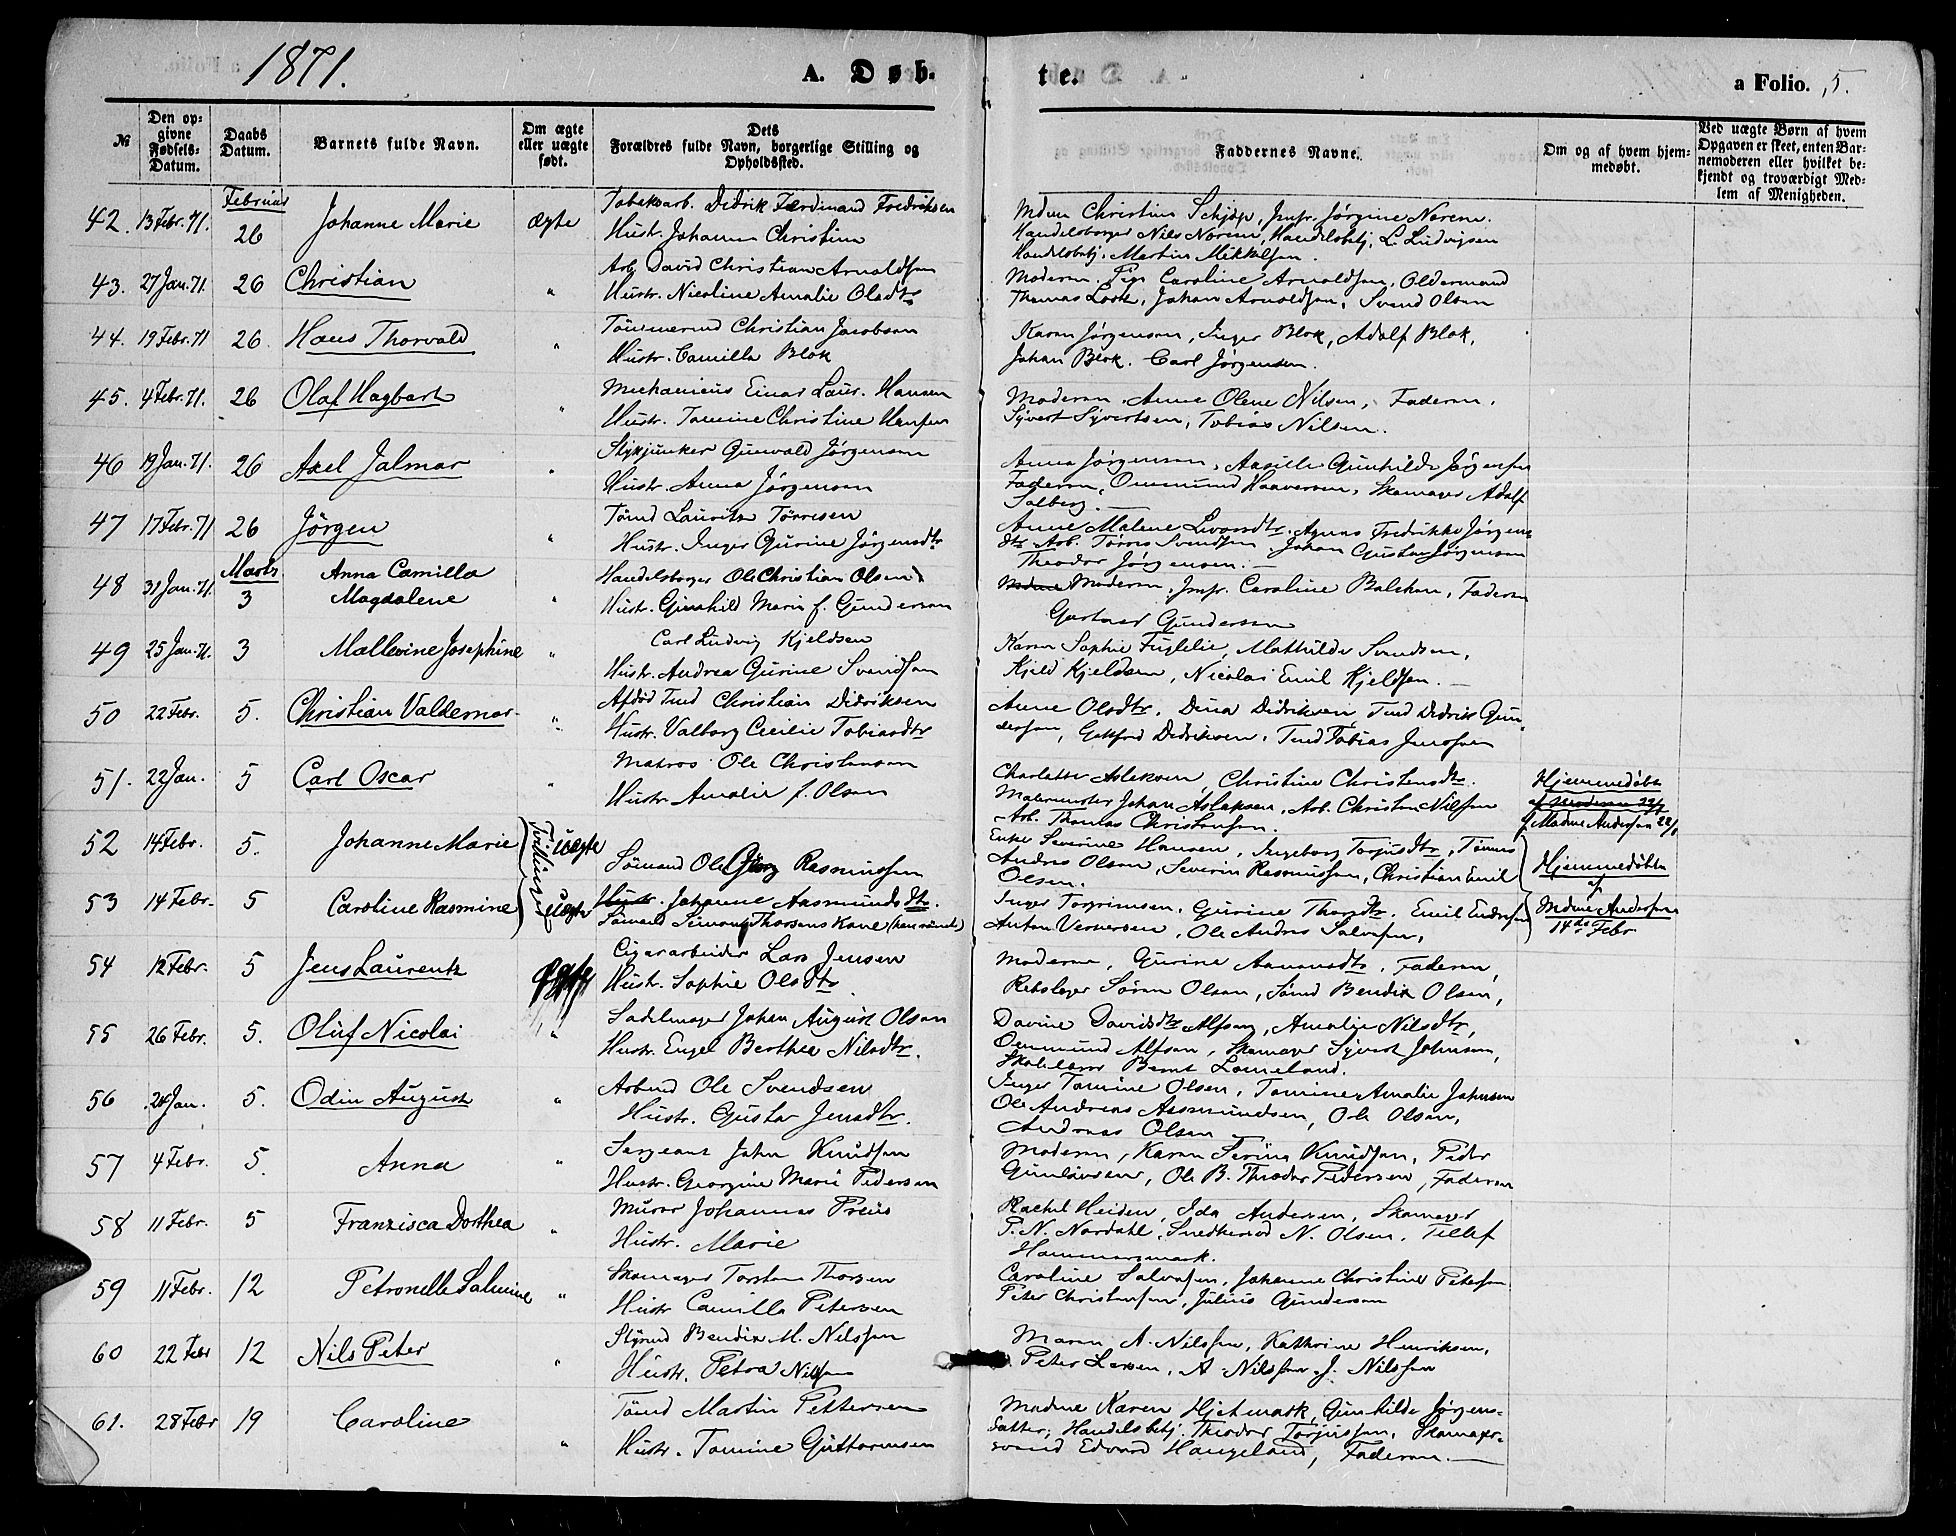 1871. A. Døb- te. a Folio. 5.
№ Den opgivne Fødsels-Datum. Daabs Datum. Barnets fulde Navn. Om ægte eller uægte født. Dets Forældres fulde Navn, borgerlige Stilling og Opholdssted. Faddernes Navne. Om og af hvem hjemmedøbt. Ved uægte Børn af hvem Opgaven er skeet, enten Barnemoderen eller hvilket bekjendt og troværdigt Medlem af Menigheden.
Februar
42. 13 Febr. 71. 26 Johanne Marie ægte Tobaksarb. Didrik Ferdinand Fredriksen
Hustr. Johanne Christine
Mdme Christine Schjøp, Jmfr. Jørgine Norem.
Handelsborger Nils Norem, Handelsbetj. L. Ludvigsen
Handelsbetj. Martin Mikkelsen.
43. 27 Jan. 71. 26 Christian " Arb. David Christian Arnoldsen
Hustr. Nicoline Amalie Olsdtr
Moderen, Pige Caroline Arnoldsen, Oldermand
Thomas Loste, Johan Arnoldsen, Svend Olsen
44. 19 Febr. 71 26. Hans Thorvald " Tømmermd Christian Jacobsen
Hustr. Camilla Blok
Karen Jørgensen, Inger Blok, Adolf Blok,
Johan Blok. Carl Jørgensen.
45. 4 Febr. 71. 26 Olaf Hagbart " Mechanicus Einar Laur. Hansen
Hustr. Tomine Christine Hansen
Moderen, Anne Olene Nilsen, Faderen,
Syvert Syvertsen, Tobias Nilsen.
46 19 Jan. 71. 26 Axel Jalmar " Stykjunker Gunvald Jørgensen
Hustr. Anna Jørgensen
Anna Jørgensen, Aasille Gunhilde Jørgensen
Faderen, Ommund Haaversen, Skomager Adolf
Solberg.
47 17 Febr. 71 26 Jørgen " Tømd Lauritz Tørresen
Hustr. Inger Gurine Jørgensdtr
Anne Malene Evensdtr. Agnes Fredrikke Jørgens
dtr Arb. Tørres Svendsen Johan Gustav Jørgensen
Theodor Jørgensen.
Marts
48 31 Jan. 71. 3 Anna Camilla
Magdalene " Handelsborger Ole Christian Olsen
Hustr. Gunhild Marie f. Gundersen
Mdme Moderen, Jmfr. Caroline Balchen, Faderen
Gartner Gundersen
49 25 Jan. 71. 3 Mallevine Josephine " Carl Ludvig Kjeldsen
Hustr. Andrea Gurine Svendsen
Karen Sophie Fuglelie, Mathilde Svendsen,
Kjeld Kjeldsen, Nicolai Emil Kjeldsen.
50 22 Febr. 5. Christian Valdemar " Afdød Tmd Christian Didriksen
Hustr. Valborg Cecilie Tobiasdtr
Anne Olsdtr. Dina Didriksen, Tmd Didrik Gun
dersen, Didriksen. Tmd Tobias Jensen
51. 22 Jan. 5 Carl Oscar " Matros Ole Christensen
Hustr Amalie f. Olsen
Charlotte Aslaksen, Christine Christensdtr.
Malermester Johan Aslaksen, Arb. Christen Nilssen
Arb. Thomas Christensen.
Hjemmedøbt
af Moderen 22/1
f Madme Andersen 22/1
52 14 Febr. 5. Johanne Marie Tvillinger uægte Sømand Ole Georg Rasmussen
Enke Severine Hansen, Ingeborg Torjusdtr, Tønnes
Andres Olsen, Severin Rasmussen, Christian Emil
Olsen.
Hjemmedøbt
af
Mdme Andersen
14de Febr
53 14 Febr. 5 Caroline Rasmine uægte Hustr. Johanne Aasmundsdtr.
Sømand Simon Thorsens Kone
Inger Torgrimsen, Gurine Thorsdtr. Emil Endresen
Anton Vernersen, Ole Andres Salvesen,
54 12 Febr. 5 Jens Laurentz ægte Cigararbeider Lars Jensen
Hustr. Sophie Olsdtr
Moderen, Gurine Aanonsdtr, Faderen,
Rebslager Søren Olsen, Sømd Bendix Olsen,
55 26 Febr. 5. Oluf Nicolai " Sadelmager Johan August Olsen
Hustr. Engel Berthea Nilsdtr.
Davine Davidsdtr Alfsen, Amalie Nilsdtr,
Ommund Alfsen, Skomager Syvert Johnsen,
Skolelærer Bernt Lomeland.
56 24 Jan. 5. Odin August " Arbmd Ole Svendsen
Hustr. Gusta Jensdtr.
Inger Tomine Olsen, Tomine Amalie Johnsen
Ole Andreas Aasmundsen, Ole Olsen,
Andreas Olsen
57 4 Febr. 5. Anna " Sergeant John Knudsen
Hustr. Georgine Marie Pedersen
Moderen, Karen Serine Knudsen, Peder
Gunleivsen, Ole B. Theodor Pedersen, Faderen
58 11 Febr. 5 Franzisca Dorthea " Murer Johannes Preus
Hustr. Marie
Rachel Heiden, Ida Andersen, Skomager
P. N. Nordahl, Snedkersvd N. Olsen, Tellef
Hammersmark.
59 11 Febr. 12 Petronelle Salmine " Skomager Torsten Thorsen
Hustr Camilla Petersen
Caroline Salvesen, Johanne Christine Petersen
Peter Christensen, Julius Gundersen
60 22 Febr 12 Nils Peter " Styrmd Bendix M. Nilssen
Hustr. Petra Nilssen
Maren A. Nilssen, Kathrine Henriksen,
Peter Larsen, A. Nilssen, J. Nilssen
61. 28 Febr 19 Caroline " Tømd Martin Pettersen
Hustr. Tomine Guttormsen
Madme Karen Hjelmark, Gunhilde Jørgens-
datter, Handelsbetj. Theodor Torjussen, Skomager-
svend Edvard Haugeland, Faderen.